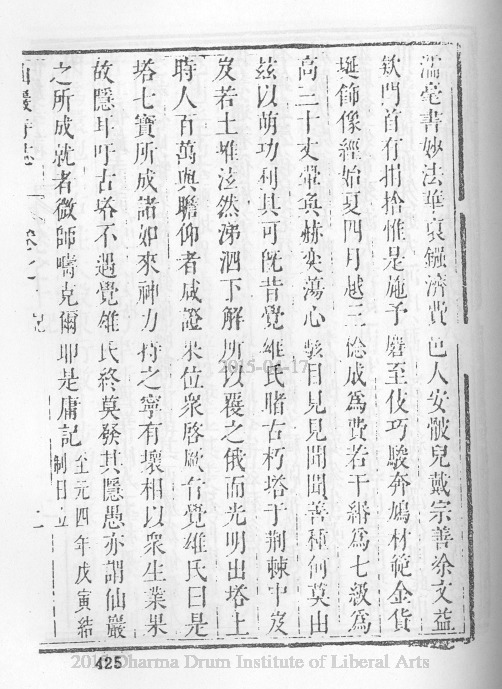 濡毫書妙法華裒鏹濟費邑人安骰兒戴宗善徐文益
欵門首有捐捨惟是施予麕至伎巧駿奔鳩材範金貨
埏飾像經始夏四月越三 稔成為費若干緡為七級為
高三十丈翬奐赫奕蕩心駭目見見聞聞善種何莫由
茲以萌功利其可旣昔覺雄氏睹古朽塔于荆棘中岌
岌若土堆泫然涕泗下解所以覆之俄而光明出塔上
時人百萬與瞻仰者咸證果位衆啓厥旨覺雄氏曰是
塔七寶所成諸如來神力持之寧有壞相以衆生業果
故隱耳吁古塔不遇覺雄氏終莫發其隱愚亦謂仙巖
之所成就者微師疇克爾耶是庸記 至元四年戊寅結
制日立
仙巖寺志 卷之 記
425
2015-04-17
Dharma Drum Institute of Liberal Arts